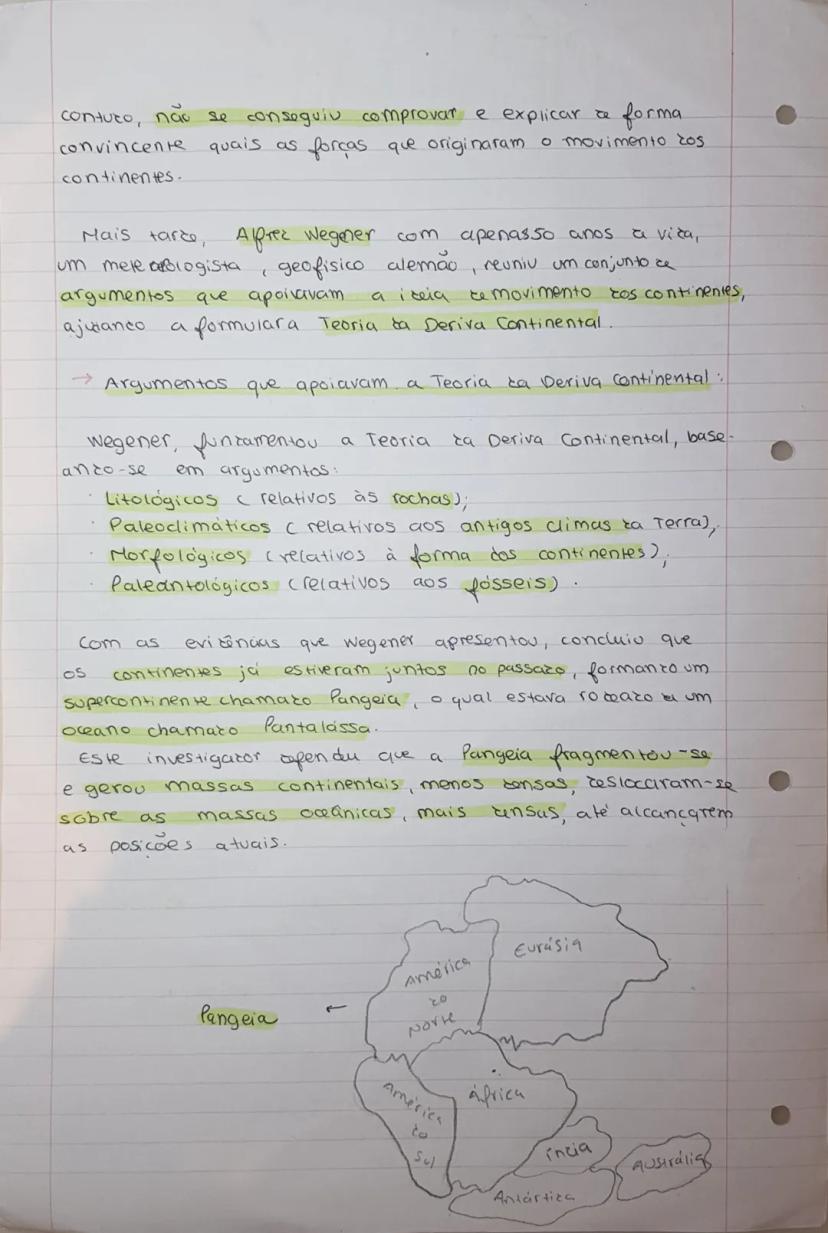 contudo, não se conseguiu comprovar e explicar de forma
convincente quais as forças que originaram o movimento dos
continentes.
Mais tarde, Alfred Wegener com apenas 50 anos de vida,
um meteorologista, geofísico alemão, reuniu um conjunto de
argumentos que apoiavam a ideia de movimento dos continentes,
ajudando a formular a Teoria da Deriva Continental.
→ Argumentos que apoiavam a Teoria da Deriva Continental:
Wegener, fundamentou a Teoria da Deriva Continental, base-
ando-se em argumentos:
· Litológicos (relativos às rochas);
· Paleoclimáticos (relativos aos antigos climas da Terra);
· Morfológicos (relativos à forma dos continentes);
· Paleontológicos (relativos aos fósseis).
Com as evidências que Wegener apresentou, concluio que
os continentes já estiveram juntos no passado, formando um
supercontinente chamado Pangeia, o qual estava rodeado de um
oceano chamado Pantalássa.
Este investigador defendeu que a Pangeia fragmentou-se
e gerou massas continentais, menos densas, deslocaram-se
sobre as massas oceânicas, mais densas, até alcançarem
as posições atuais.
Eurásia
América
do
Norte
Pangeia ←
América
do
Sul
África
Índia
Austrália
Antártica